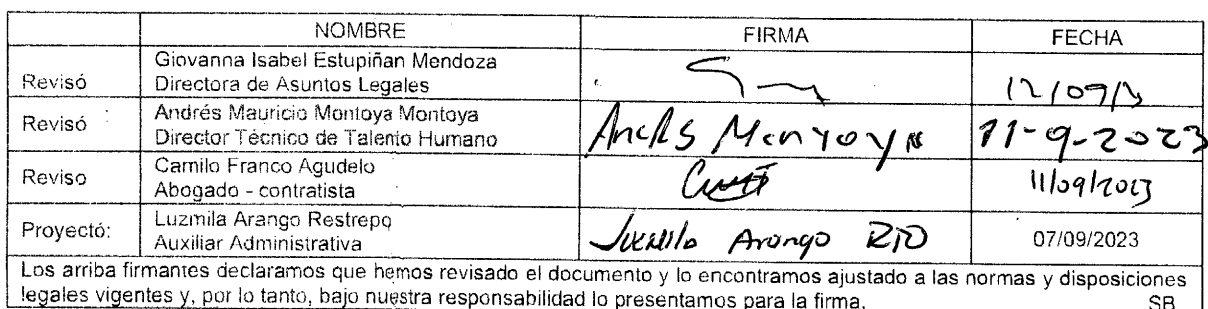 NOMBRE FIRMA FECHA
Giovanna Isabel Estupiñan Mendoza
Revisó Directora de Asuntos Legales 12/09/
Andrés Mauricio Montoya Montoya
Revisó Director Técnico de Talento Humano Andrés Montoya 11-9-2023
Camilo Franco Agudelo
Reviso Abogado - contratista 11/09/2023
Luzmila Arango Restrepo
Proyectó: Auxiliar Administrativa Luzmila Arango 07/09/2023
Los arriba firmantes declaramos que hemos revisado el documento y lo encontramos ajustado a las normas y disposiciones
legales vigentes y, por lo tanto, bajo nuestra responsabilidad lo presentamos para la firma. SB